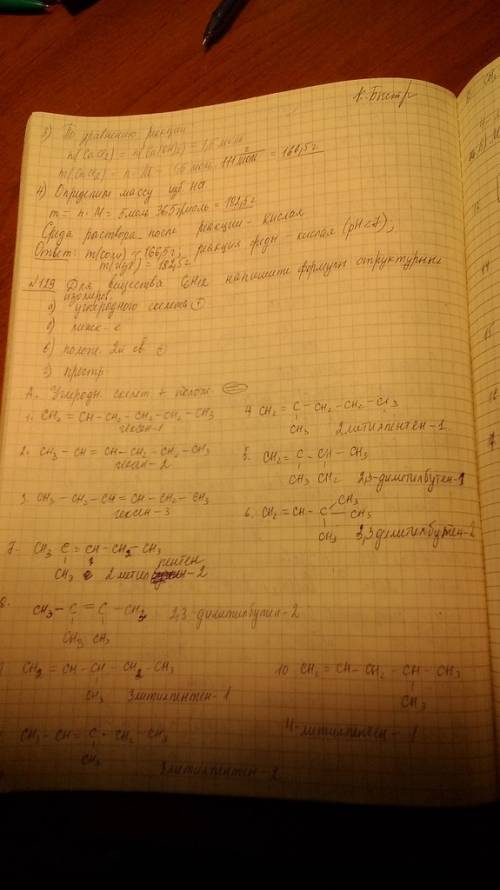 3) По уравнению реакции
n(CaCl2) = n(Ca(OH)2) = 1,5 моль
m(CaCl2) = n · M = 1,5 моль · 111 г/моль = 166,5 г
4) Определим массу HCl
m = n · M = 5 моль · 36,5 г/моль = 182,5 г
Среда раствора после реакции - кислая
Ответ: m(соли) = 166,5 г, реакция среды кислая (pH<7),
= 182,5 г
№129 Для вещества C6H12 напишите формулы структурных
изомеров
а) углеродного скелета
б)
в) полож.
г) простр.
А. Углеродн. скелет + полож
1. CH2 = CH - CH2 - CH2 - CH2 - CH3
гексен-1
2. CH3 - CH = CH - CH2 - CH2 - CH3
гексен-2
3. CH3 - CH2 - CH = CH - CH2 - CH3
гексен-3
4. CH2 = C - CH2 - CH2 - CH3
CH3 2метилпентен-1
5. CH2 = C - CH - CH3
CH3 CH3 2,3-диметилбутен-1
6. CH2 = CH - C - CH3
CH3
CH3 3,3диметилбутен-2
7. CH3 C = CH - CH2 - CH3
CH3 2метил пентен -2
8. CH3 - C = C - CH3 2,3-диметилбутен-2
CH3 CH3
CH2 = CH - CH - CH2 - CH3
CH3 3метилпентен-1
10. CH2 = CH - CH2 - CH - CH3
CH3
4-метилпентен-1
CH3 - CH = C - CH2 - CH3
CH3
3метилпентен-2